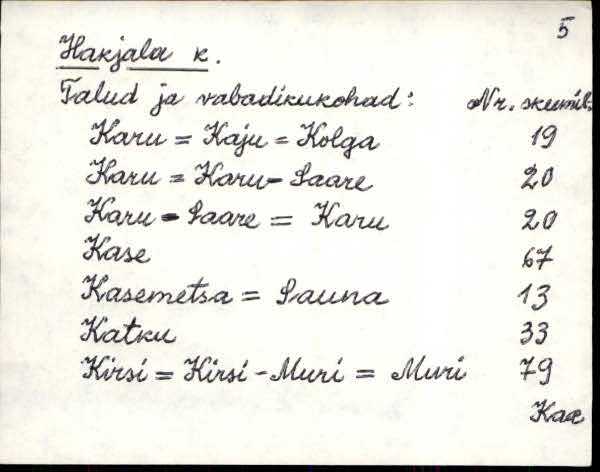 5
Hakjala k.
Talud ja vabadikukohad: Nr. skeemil:
Karu = Kaju = Kolga 19
Karu = Karu-Saare 20
Karu-Saare = Karu 20
Kase 67
Kasemetsa = Sauna 13
Katku 33
Kirsi = Kirsi-Muri = Muri 79
Kaa